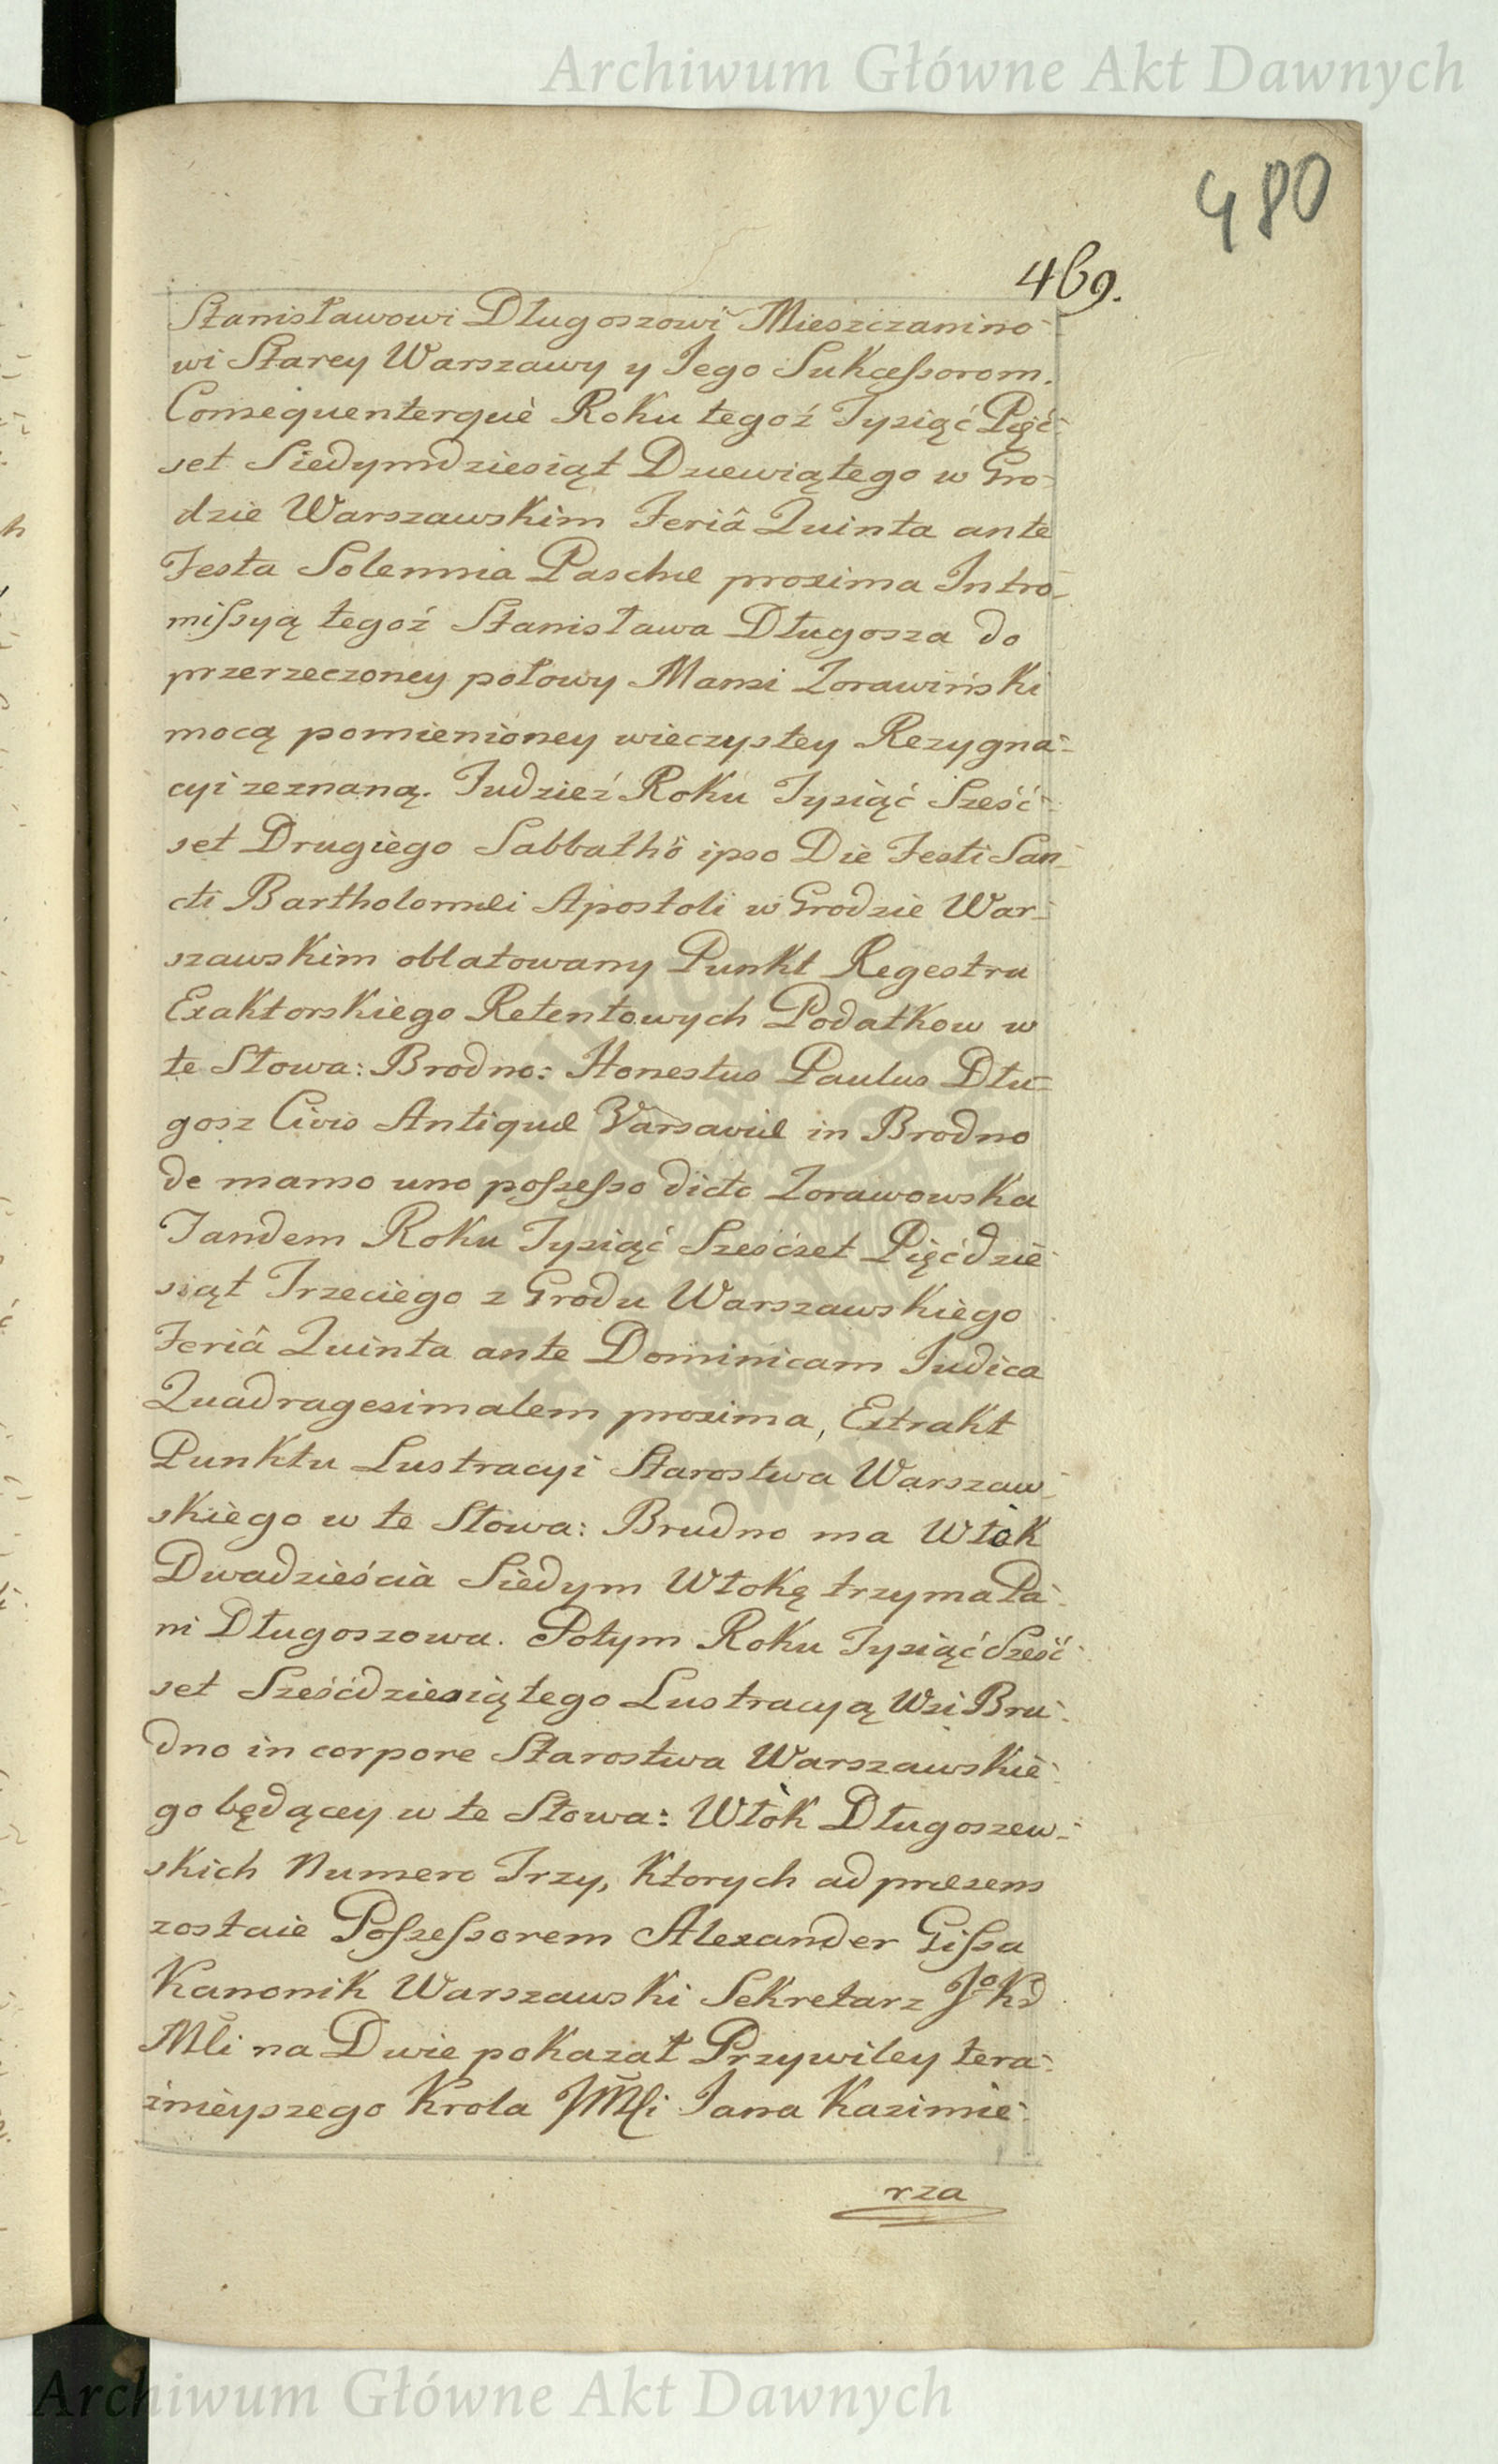 Archiwum Główne Akt Dawnych
480
469.
Stanisławowi Długoszowi Mieszczanino-
wi Starey Warszawy y Jego Sukcessorom.
Consequenterquè Roku tegoź Tysiąć Pięć-
set Siedymdziesiąt Dziewiątego w Gro-
dzie Warszawskim Feriâ Quinta ante
Festa Solemnia Paschæ proxima Intro-
missyą tegoź Stanisława Długosza do
przerzeczoney połowy Mansi Zorawiński
mocą pomienioney wieczystey Rezygna-
cyi zeznaną. Tudzieź Roku Tysiąć Sześć-
set Drugiego Sabbathô ipso Die Festi San-
cti Bartholomæi Apostoli w Grodzie War-
szawskim oblatowany Punkt Regestru
Exaktorskiego Retentowych Podatkow w
te Słowa: Brodno: Honestus Paulus Dłu-
gosz Civis Antiquæ Varsaviæ in Brodno
de manso uno possesso dicto Zorawowska
Tandem Roku Tysiąć Sześćset Pięćdzie-
siąt Trzeciego z Grodu Warszawskiego
Feriâ Quinta ante Dominicam Judica
Quadragesimalem proxima, Extrakt
Punktu Lustracyi Starostwa Warszaw-
skiego w te Słowa: Brudno ma Włók
Dwadzieścia Siedym Włokę trzyma Pa-
ni Długoszowa. Potym Roku Tysiąć Sześć-
set Sześćdziesiątego Lustracyą Wsi Bru-
dno in corpore Starostwa Warszawskie-
go będącey w te Słowa: Włók Długoszew-
skich Numero Trzy, Ktorych ad præsens
zostaie Possessorem Alexander Gissa
Kanonik Warszawski Sekretarz Jº Kr
Mli na Dwie pokazał Przywiley tera-
znieyszego Krola JMli Jana Kazimie-
rza
Archiwum Główne Akt Dawnych